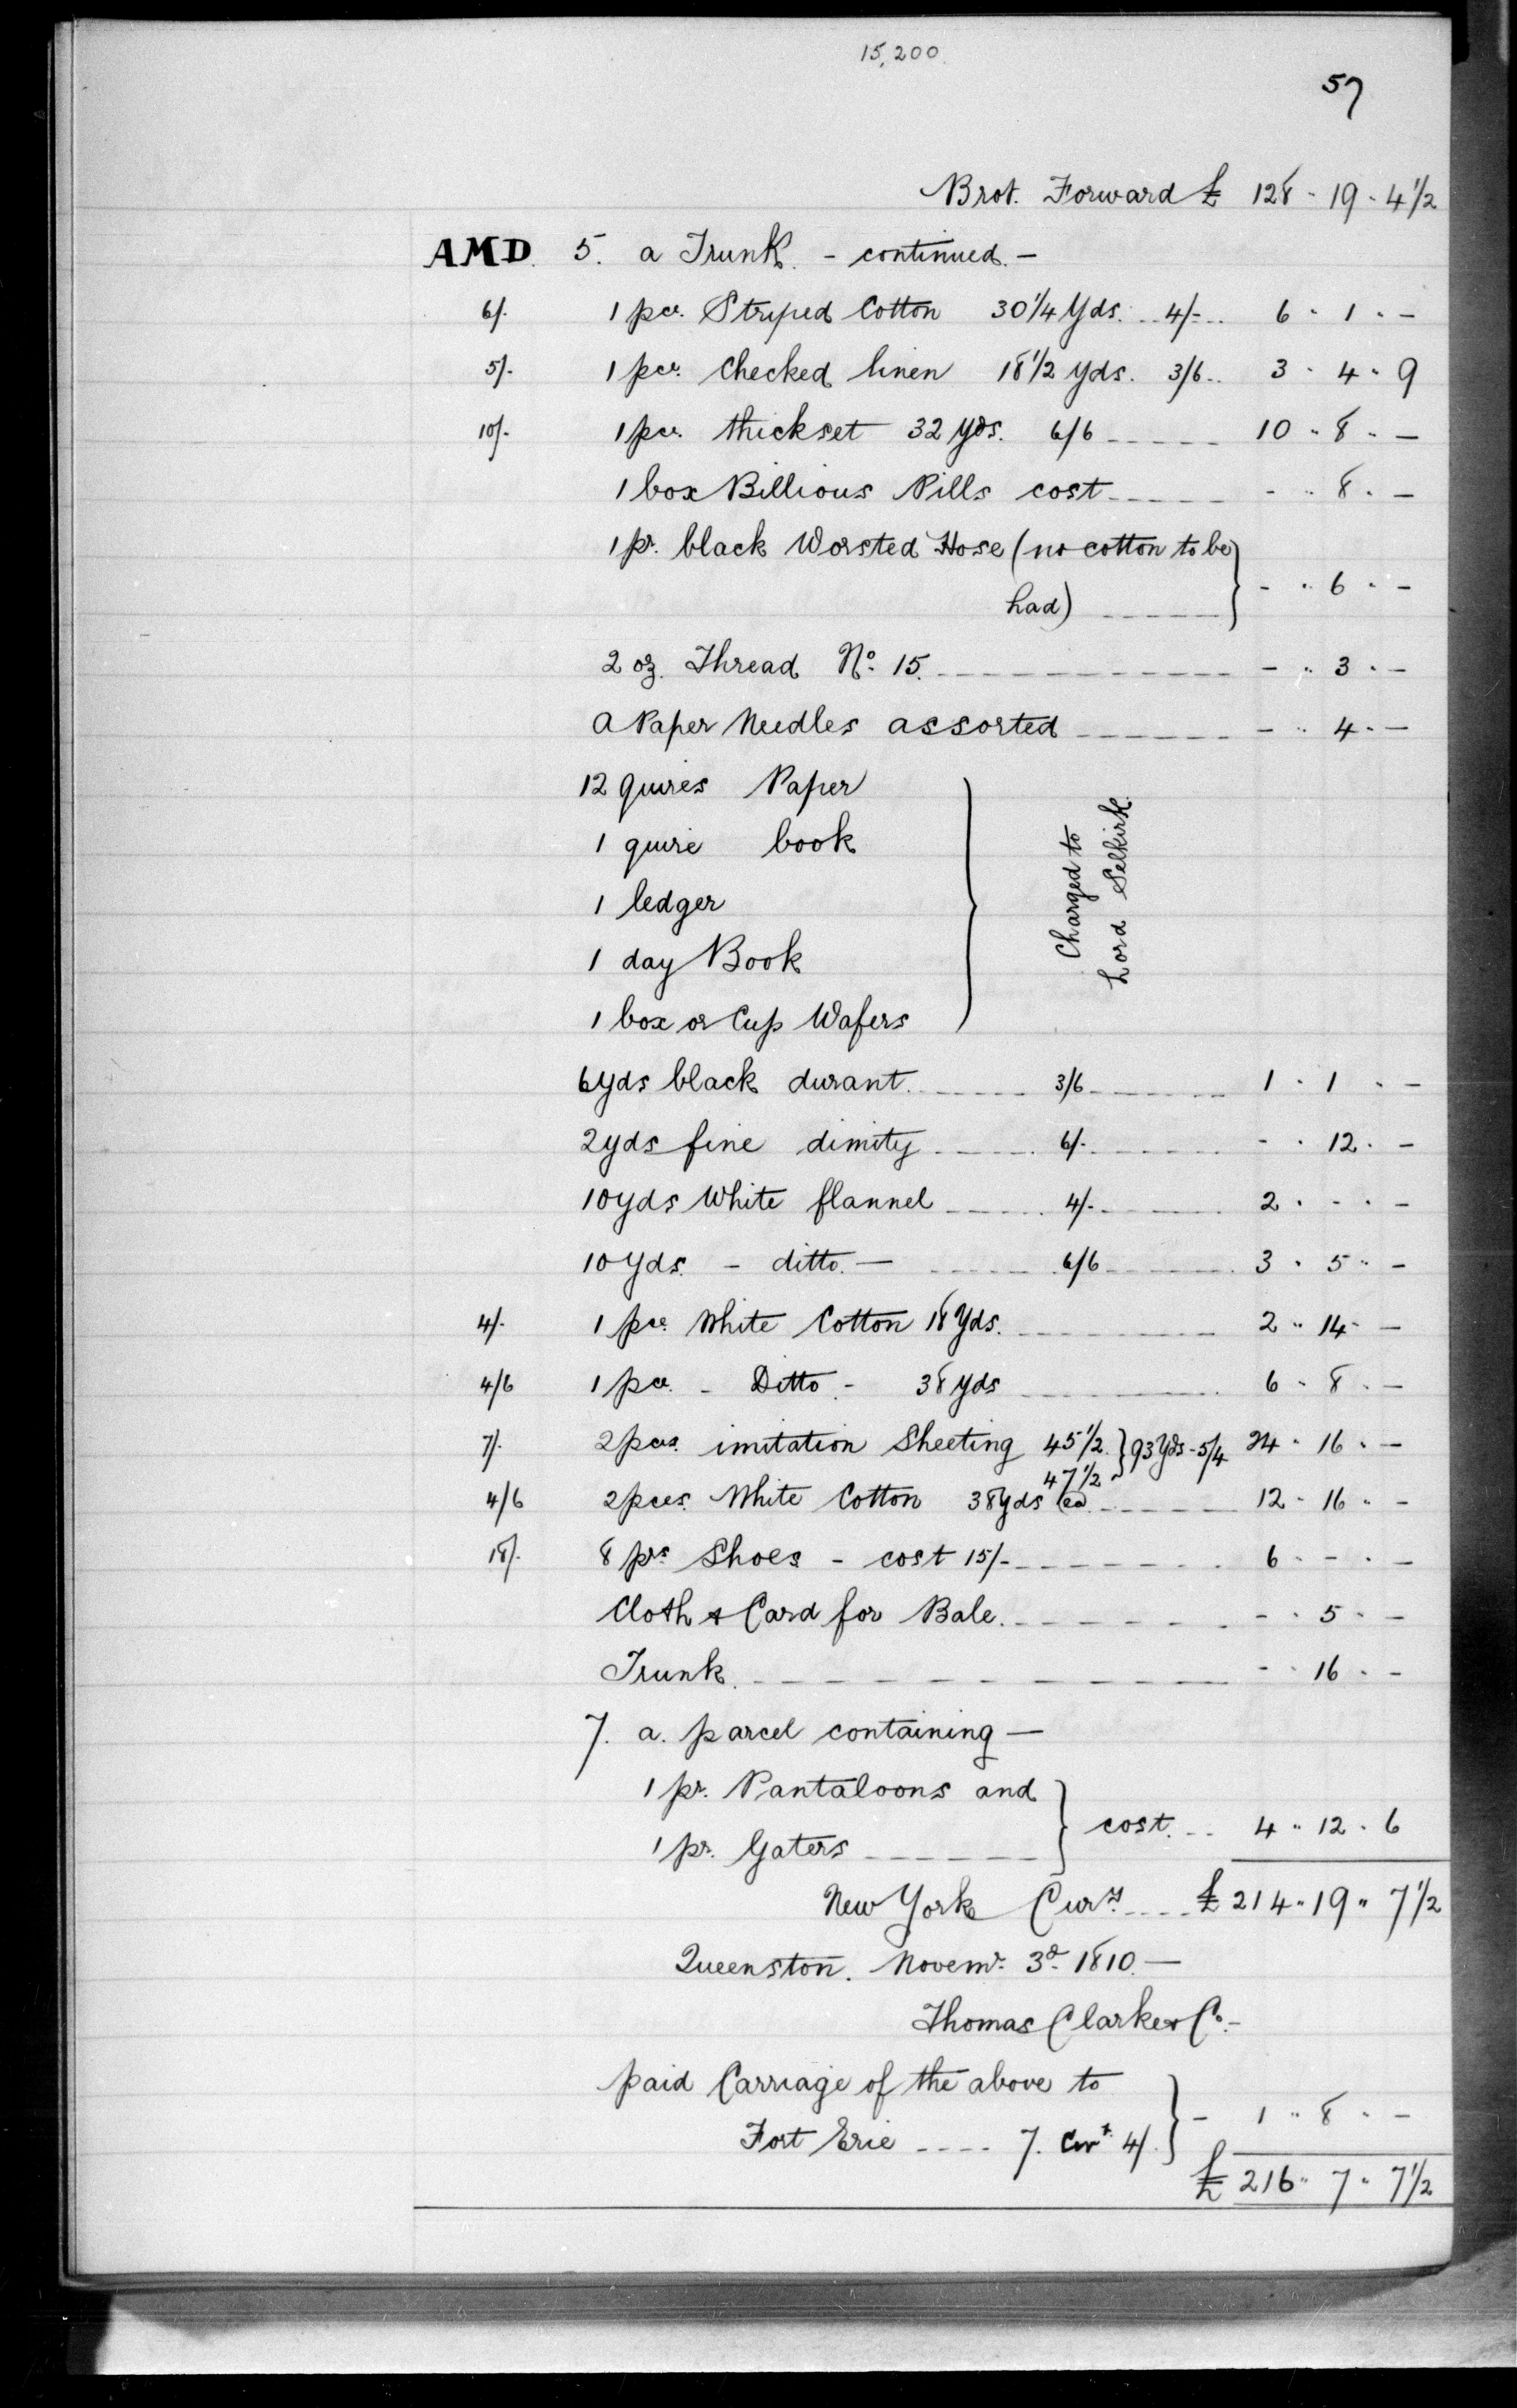 15,200
57
Brot. Forward £ 128 " 19 " 4 1/2
AMD. 5. a Trunk. - continued. -
6/. 1 pce. Striped Cotton 30 1/4 Yds. 4/- 6 " 1 " -
5/. 1 pce. Checked linen 18 1/2 Yds. 3/6 3 " 4 " 9
10/. 1 pce. thickset 32 Yds. 6/6 10 " 8 " -
1 box Billious Pills cost - " 8 " -
1 pr. black Worsted Hose (no cotton to be
had) - " 6 " -
2 oz. Thread No. 15. - " 3 " -
a Paper Needles assorted - " 4 " -
12 quires Paper
1 quire book
1 ledger
1 day Book
1 box or Cup Wafers
Charged to
Lord Selkirk.
6 yds black durant 3/6 1 " 1 " -
2 yds fine dimity 6/. - " 12 " -
10 yds White flannel 4/. 2 " - " -
10 Yds. - ditto. - 6/6 3 " 5 " -
4/. 1 pce. White Cotton 18 Yds. 2 " 14 " -
4/6 1 pce. - Ditto. - 38 yds 6 " 8 " -
7/. 2 pces. imitation Sheeting 45 1/2 } 93 Yds - 5/4 24 " 16 " -
47 1/2
4/6 2 pces. White Cotton 38 yds ea. 12 " 16 " -
18/. 8 prs Shoes - cost 15/- 6 " - " -
Cloth & Card for Bale. - " 5 " -
Trunk. - " 16 " -
7. a. parcel containing -
1 pr. Pantaloons and
1 pr. Gaters } cost. 4 " 12 " 6
New York Cury. £ 214 " 19 " 7 1/2
Queenston. Novemr. 3d. 1810. -
Thomas Clarke & Co. -
paid Carriage of the above to
Fort Erie ---- 7. Cwt. 4/. } - 1 " 8 " -
£ 216 " 7 " 7 1/2